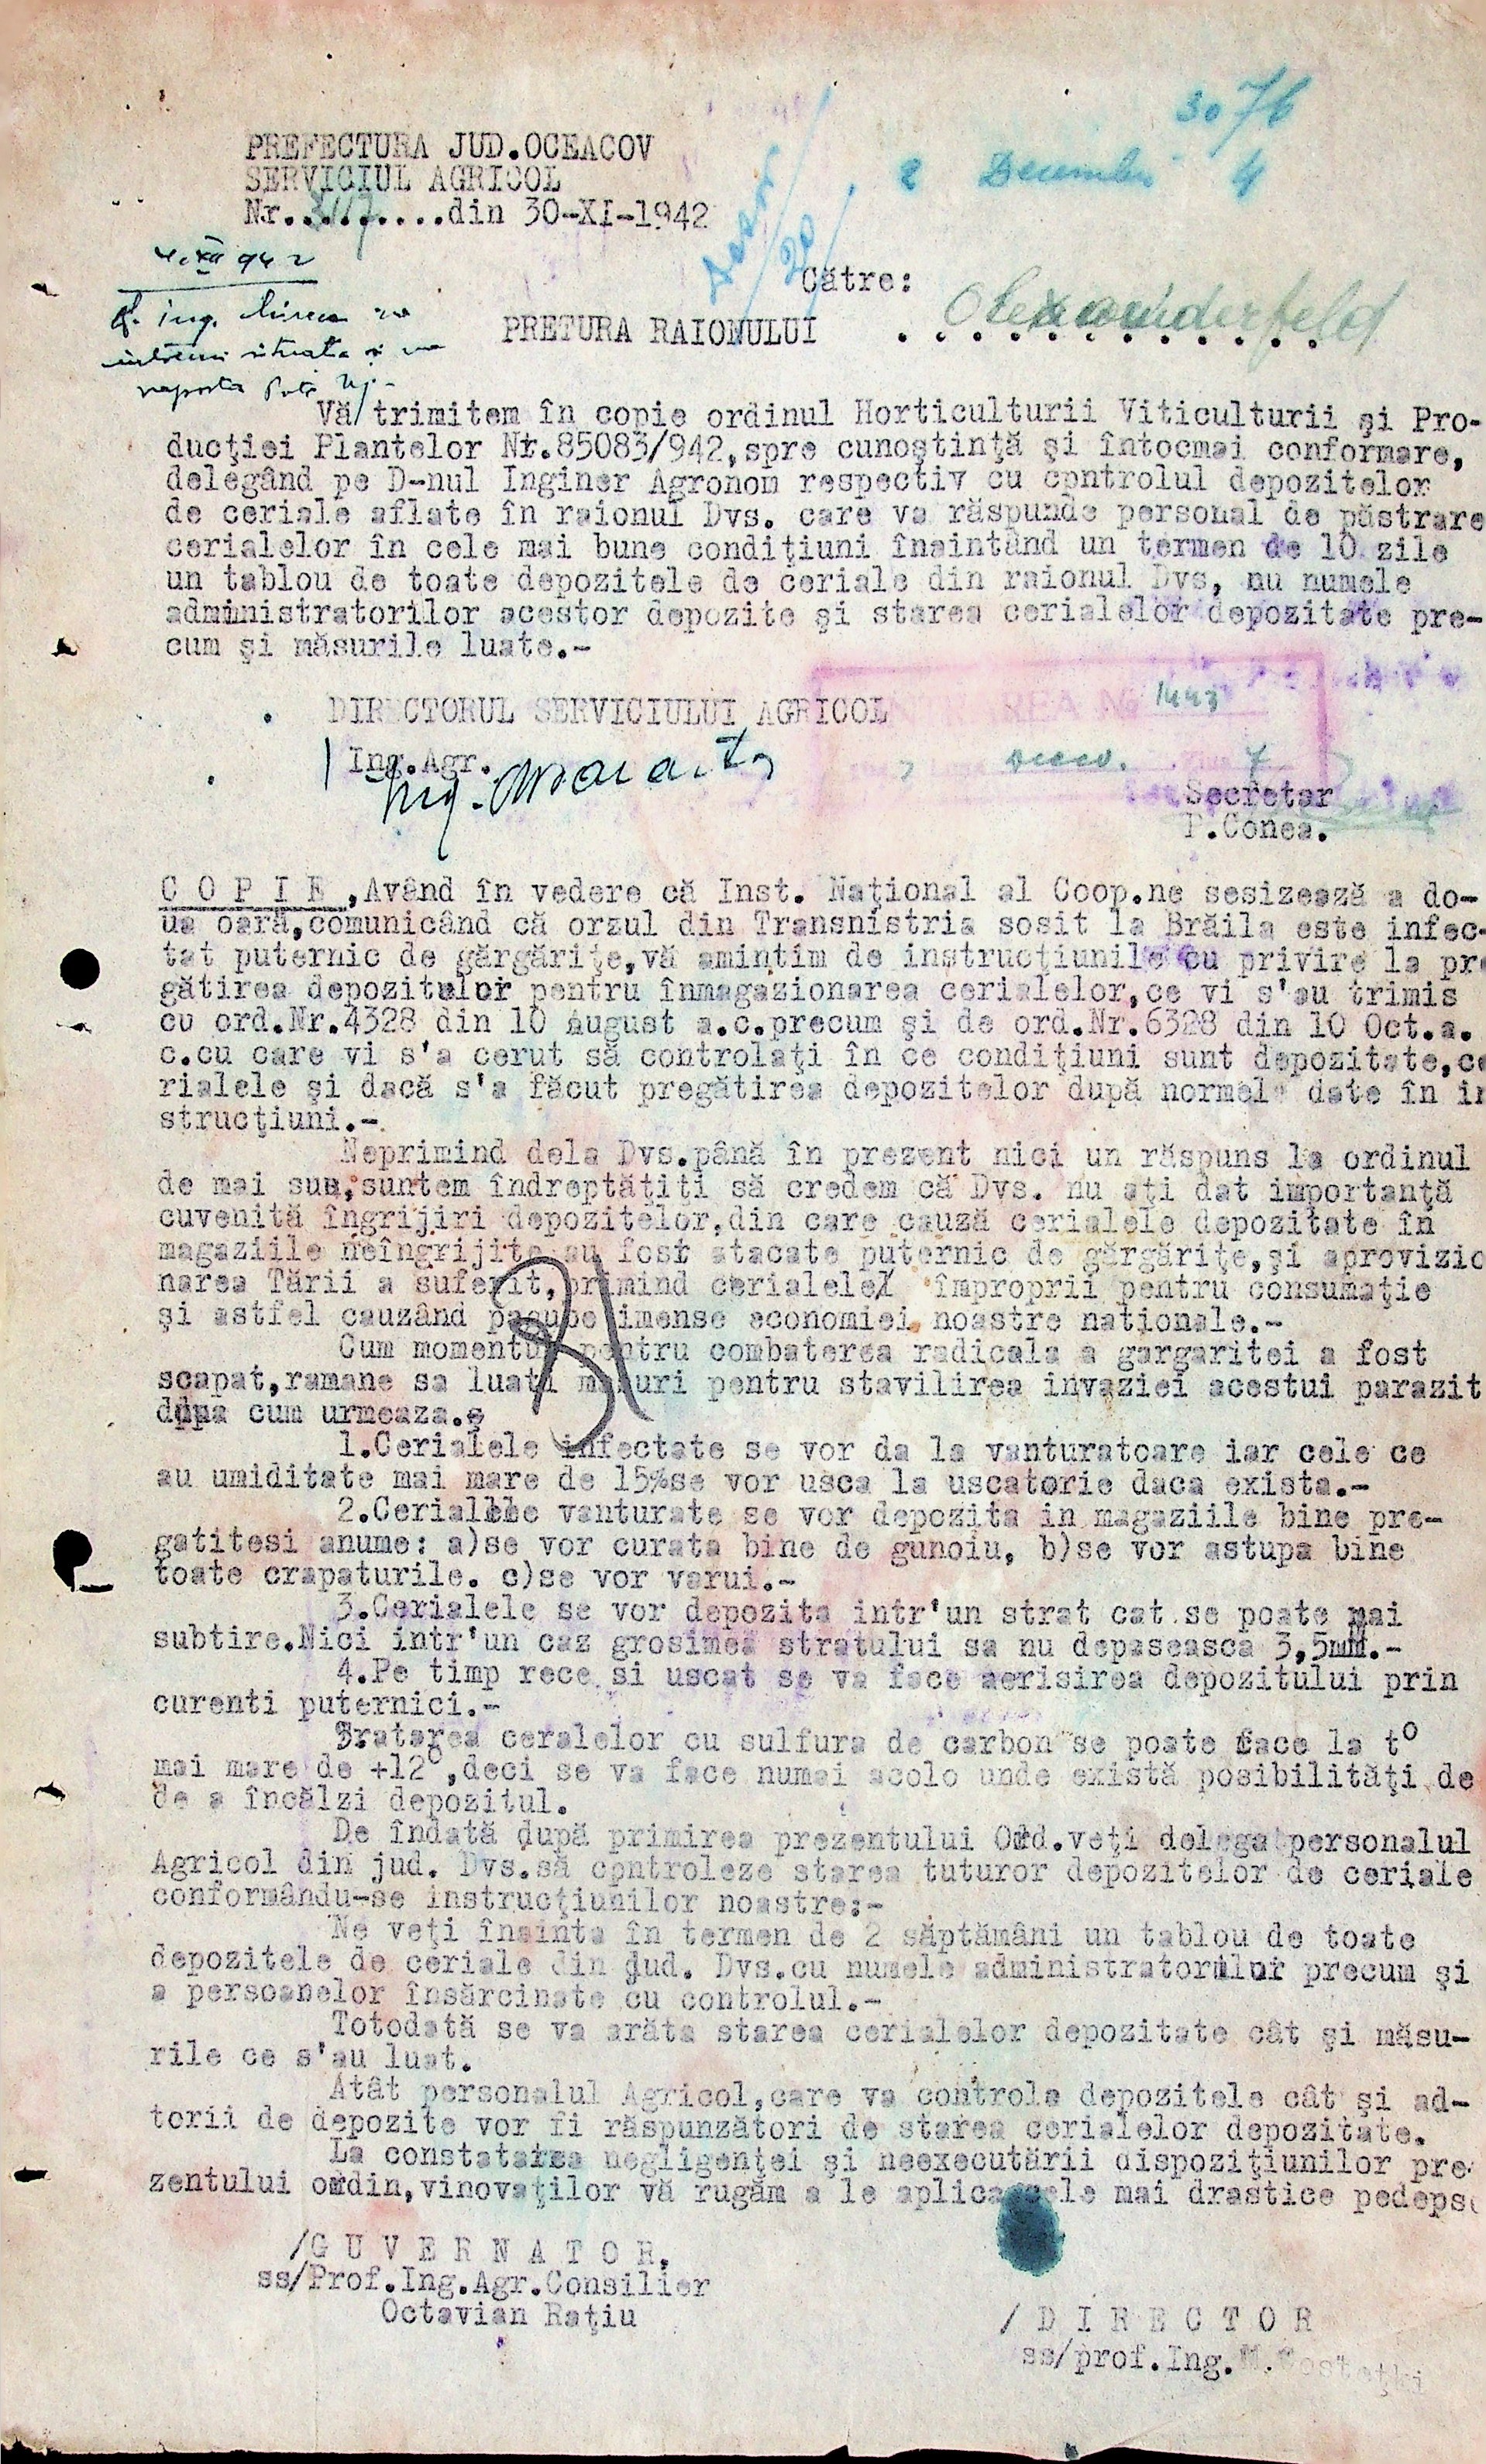 3076
2 Decembrie 4
PREFECTURA JUD.OCEACOV
SERVICIUL AGRICOL
Nr.........din 30-XI-1942
4.XII 942
Către:
PRETURA RAIONULUI Olexanderfeld
Vă trimitem în copie ordinul Horticulturii Viticulturii şi Pro-
ducţiei Plantelor Nr.85083/942,spre cunoştinţă şi întocmai conformare,
delegând pe D-nul Inginer Agronom respectiv cu controlul depozitelor
de ceriale aflate în raionul Dvs. care va răspunde personal de păstrare
cerialelor în cele mai bune condiţiuni înaintând un termen de 10 zile
un tablou de toate depozitele de ceriale din raionul Dvs, nu numele
administratorilor acestor depozite şi starea cerialelor depozitate pre-
cum şi măsurile luate.-
1443
DIRECTORUL SERVICIULUI AGRICOL
Ing.Agr.
Ing.
7
Secretar
P.Conea.
C O P I E ,Având în vedere că Inst. Naţional al Coop.ne sesizează a do-
ua oară,comunicând că orzul din Transnistria sosit la Brăila este infec-
tat puternic de gărgăriţe,vă amintim de instrucţiunile cu privire la pre
gătirea depozitelor pentru înmagazionarea cerialelor,ce vi s'au trimis
cu ord.Nr.4328 din 10 August a.c.precum şi de ord.Nr.6328 din 10 Oct.a.
c.cu care vi s'a cerut să controlaţi în ce condiţiuni sunt depozitate,ce
rialele şi dacă s'a făcut pregătirea depozitelor după normele date în in
strucţiuni.-
Neprimind dela Dvs.până în prezent nici un răspuns la ordinul
de mai sus,suntem îndreptăţiti să credem că Dvs. nu aţi dat importanţă
cuvenită îngrijiri depozitelor,din care cauză cerialele depozitate în
magaziile neîngrijite au fost atacate puternic de gărgăriţe,şi aprovizio
narea Tării a suferit,primind cerialele improprii pentru consumaţie
şi astfel cauzând pagube imense economiei noastre naţionale.-
Cum momentul pentru combaterea radicala a gargaritei a fost
scapat,ramane sa luati masuri pentru stavilirea invaziei acestui parazit
dupa cum urmeaza.
1.Cerialele infectate se vor da la vanturatoare iar cele ce
au umiditate mai mare de 15%se vor usca la uscatorie daca exista.-
2.Cerialele vanturate se vor depozita in magaziile bine pre-
gatitesi anume: a)se vor curata bine de gunoiu, b)se vor astupa bine
toate crapaturile. c)se vor varui.-
3.Cerialele se vor depozita intr'un strat cat se poate mai
subtire.Nici intr'un caz grosimea stratului sa nu depaseasca 3,5mm.-
4.Pe timp rece si uscat se va face aerisirea depozitului prin
curenti puternici.-
Tratarea ceralelor cu sulfura de carbon se poate face la t°
mai mare de +12°,deci se va face numai acolo unde există posibilităţi de
de a încălzi depozitul.
De îndată după primirea prezentului Ord.veţi delega personalul
Agricol din jud. Dvs.să controleze starea tuturor depozitelor de ceriale
conformându-se instrucţiunilor noastre:-
Ne veţi înainta în termen de 2 săptămâni un tablou de toate
depozitele de ceriale din jud. Dvs.cu numele administratorilor precum şi
a persoanelor însărcinate cu controlul.-
Totodată se va arăta starea cerialelor depozitate cât şi măsu-
rile ce s'au luat.
Atât personalul Agricol,care va controla depozitele cât şi ad-
torii de depozite vor fi răspunzători de starea cerialelor depozitate.
La constatarea negligenţei şi neexecutării dispoziţiunilor pre-
zentului ordin,vinovaţilor vă rugăm a le aplica cele mai drastice pedepse
/G U V E R N A T O R,
ss/Prof.Ing.Agr.Consilier
Octavian Raţiu
/ D I R E C T O R
ss/prof.Ing.M.Costeţki